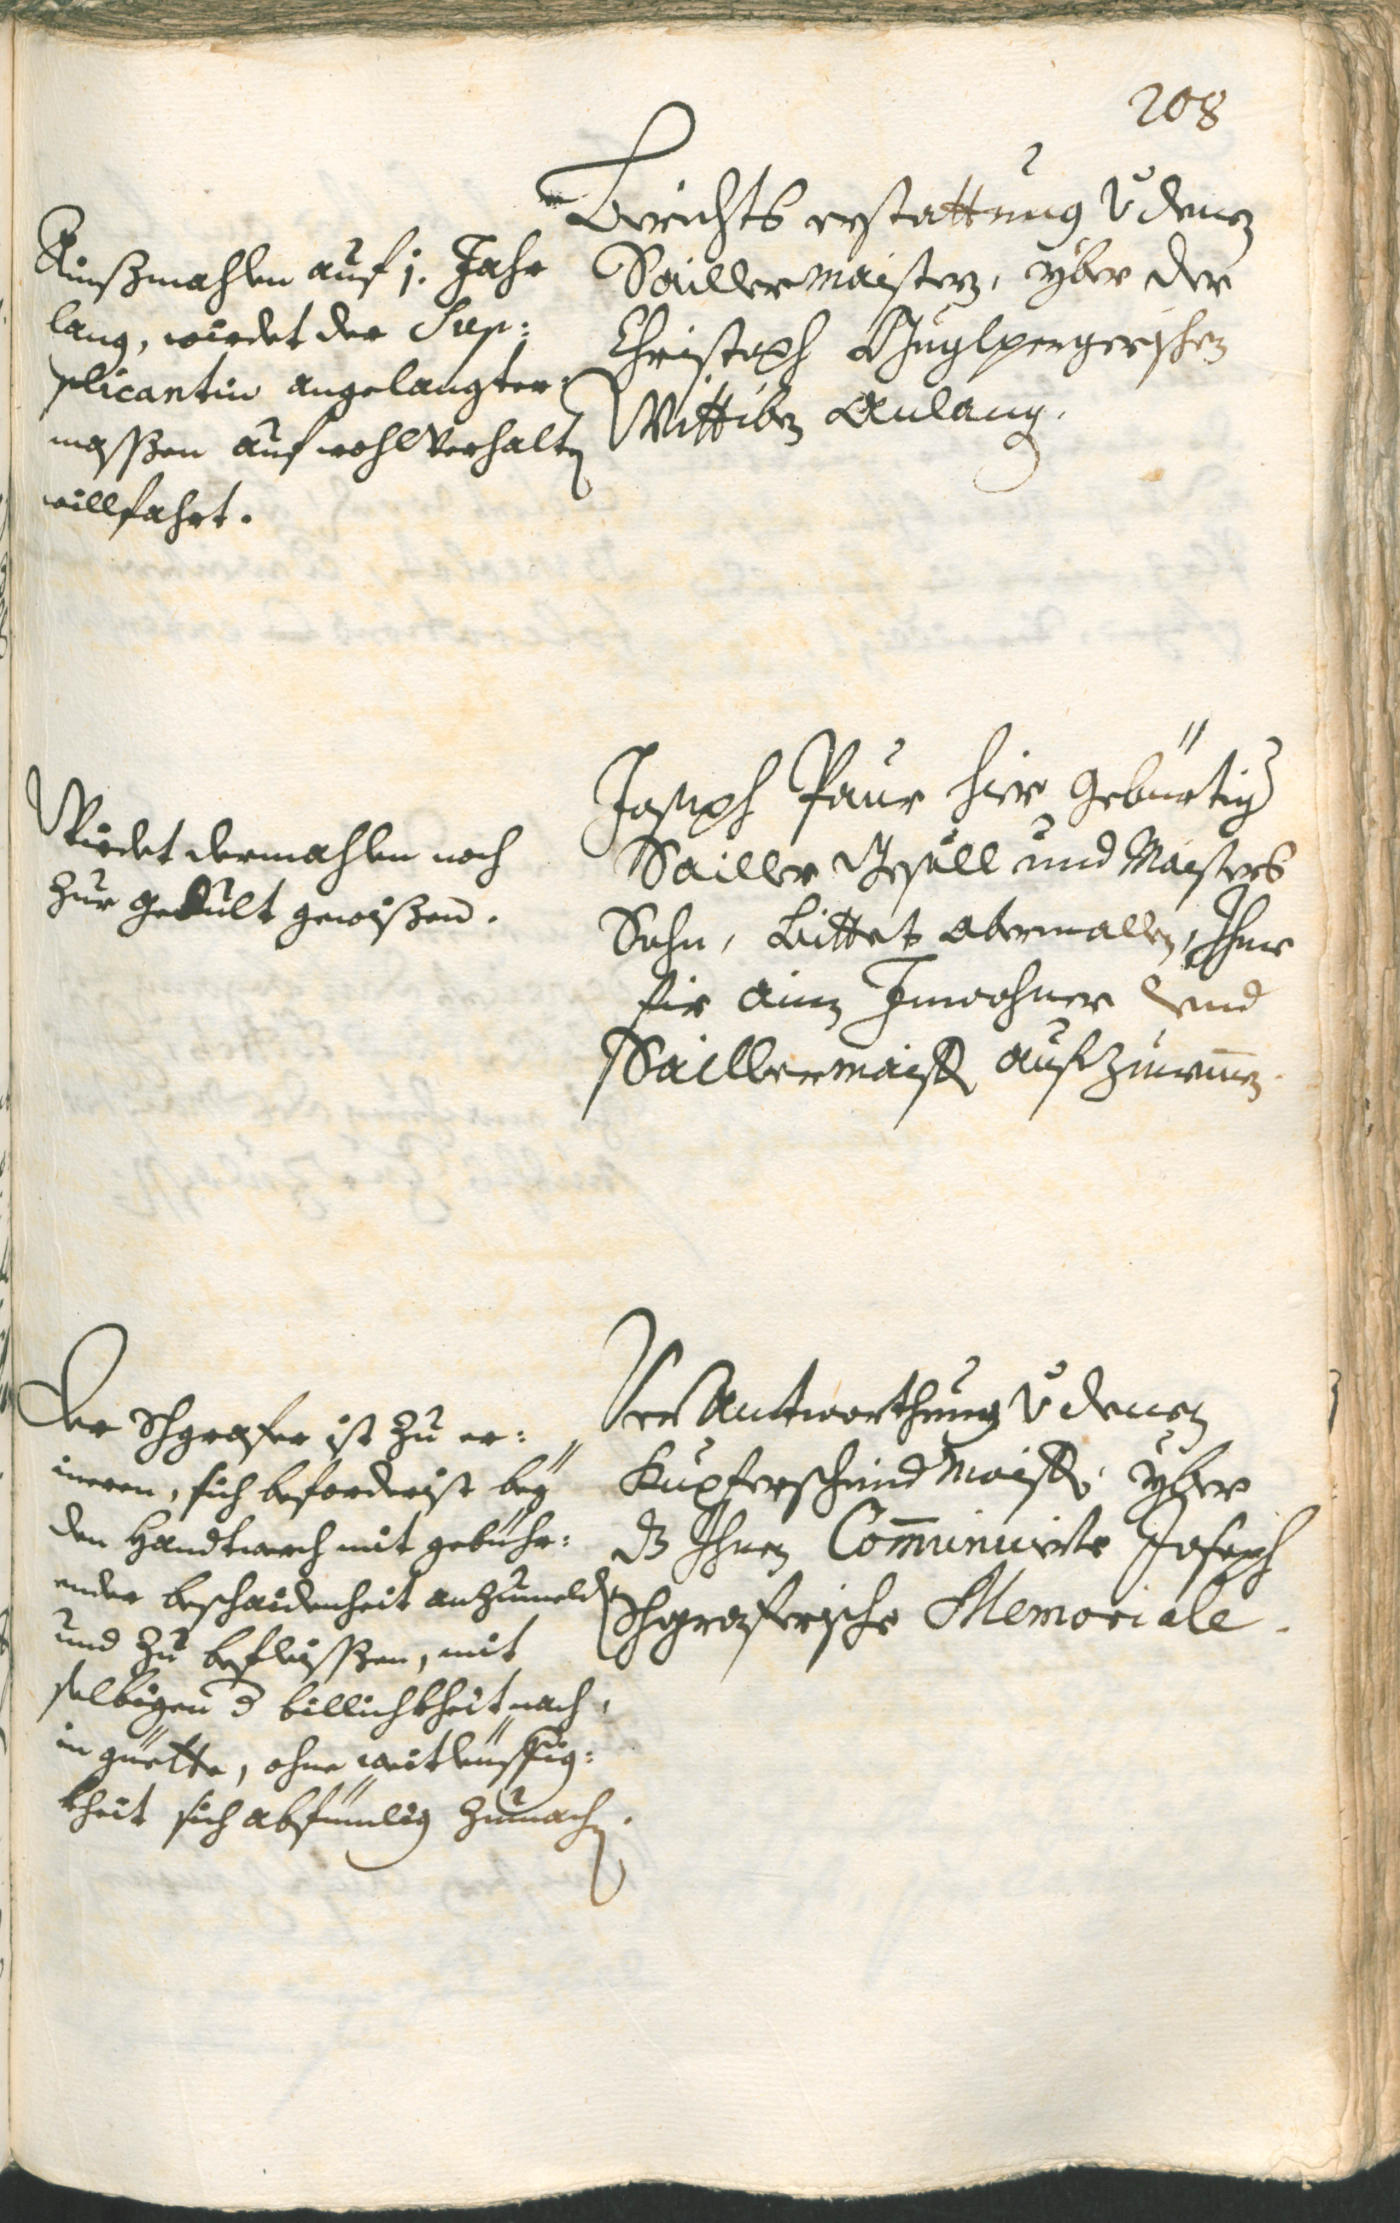 208
Berichts erstattung v denen
Sailler Maistern, yber der
Christoph Kuglpergerischen
Wittiben Anlang.
mahlen auf j. Jahr
lang, wirdet der Sup=
plicantin angelangter=
massen auf wohl Verhalten
willfahrt.
Joseph Paur hier gebürtig
Sailler Gesöll und Maisters
Sohn, bittet abermallen, Ihne
fir ainen Inwohner und
Saillermaister aufzunemmen.
Wirdet dermahlen noch
zur gedult gewisen.
Verantworthung v denen
Kupferschmid Maister, yber
dz Ihnen Communicirte Joseph
Schgraferische Memoriale.
Der Schgrafer ist zu er=
inern, sich befordrist bey
den Handtwerch mit gebühr=
ender beschaidenheit anzumelden
und zu befleissen, mit
selbigen d billichkheit nach,
in güette, ohne weitleüffig=
kheit sich abfündig zumachen.